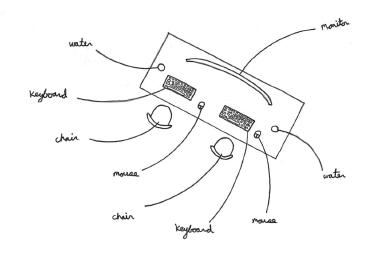 monitor
water
keyboard
chair
mouse
chair
keyboard
mouse
water